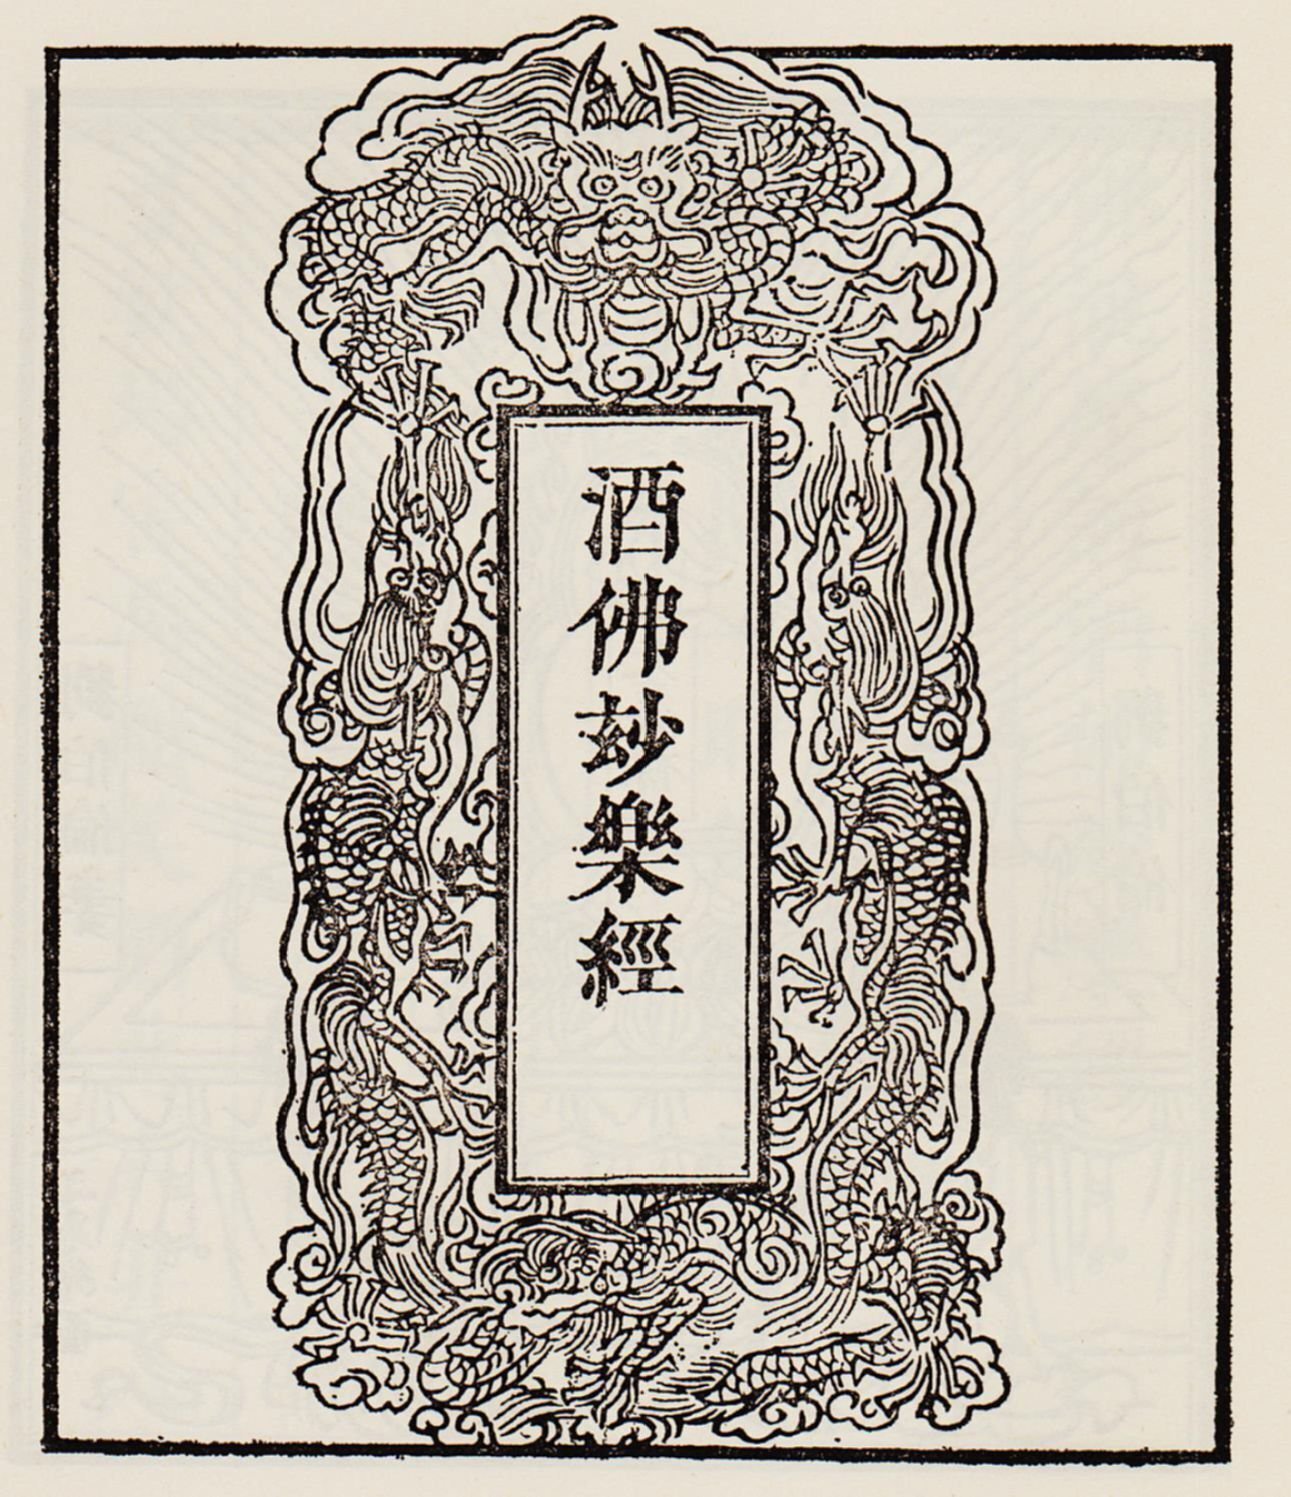 酒佛玅樂經